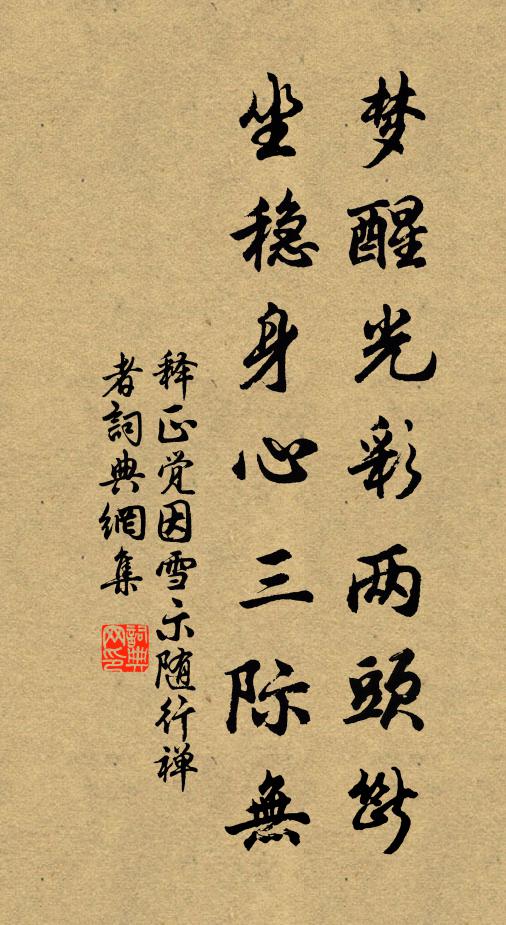 梦醒光彩两頭断
坐穏身心三际無
释正觉因雪示随行禅
者詞典網集
詞典网印